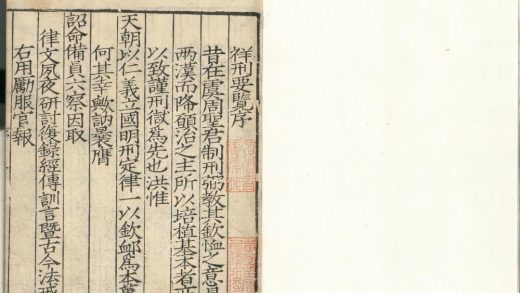 祥刑要覽序
昔在虞周聖君制刑弼教其欽恤之意
兩漢而降願治之主所以培植基本者
以致謹刑獄爲先也洪惟
天朝以仁義立國明刑定律一以欽卹爲本
何其幸歟訥曩膺
詔命備員六察因取
律文夙夜研討復錄經傳訓言暨古今法戒
右用勵服官報